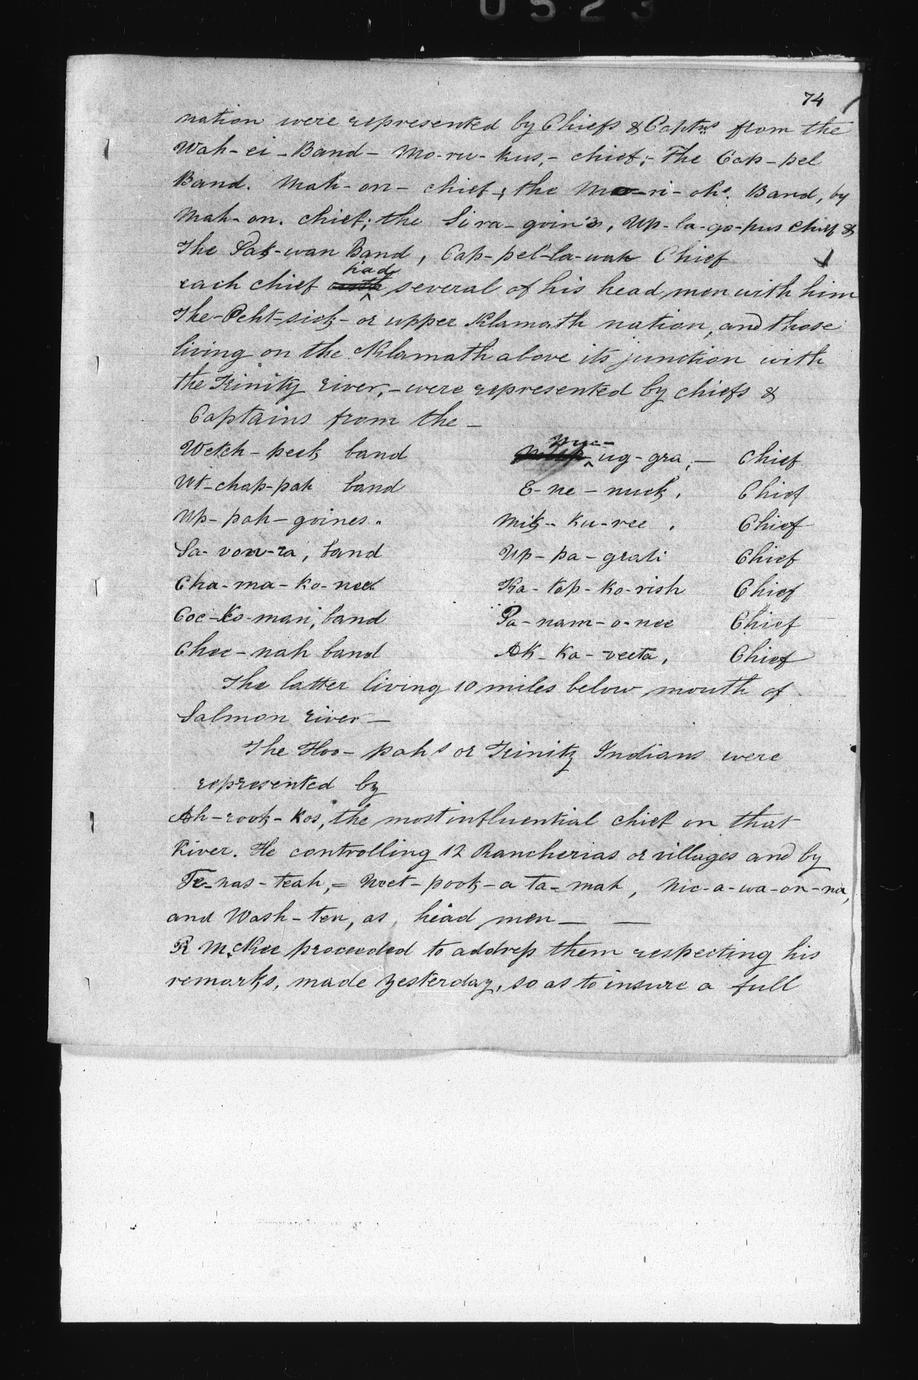 0523
74
nation were represented by Chiefs & Capt^ns from the
Wah-ei-Band- Mo-ru-kus,- chief;- The Cap-pel
Band. Mah-on- chief; the Mo-ri-ohs. Band, by
Mah-on. chief; the Si ra-goin's, Up-la-go-pus chief &
The Pak-wan Band, Cap-pel-la-wah Chief
had
each chief several of his head men with him
The-Peht-sick- or upper Klamath nation, and those
living on the Klamath above its junction with
the Trinity river,- were represented by chiefs &
Captains from the-
Wetch-peck band ug-gra,- Chief
Ut-chap-pah band E-ne-nuck, Chief
Up-pah-goines. Mik-ku-ree, Chief
Sa-von-ra, band Up-pa-grati Chief
Cha-ma-ko-nec Ka-top-ko-rish Chief
Coc-ko-man, band Pa-nam-o-nee Chief
Chee-nah band Ak-ka-veeta, Chief
The latter living 10 miles below mouth of
Salmon river-
The Hoo-pahs or Trinity Indians were
represented by
Ah-rook-kos, the most influential chief on that
River. He controlling 12 Rancherias or villages and by
Te-nas-teah,= Noet-pook-a ta-mah, Nic-a-wa-on-na,
and Wash-ten, as head men- -
R McKee proceeded to address them respecting his
remarks, made yesterday, so as to insure a full